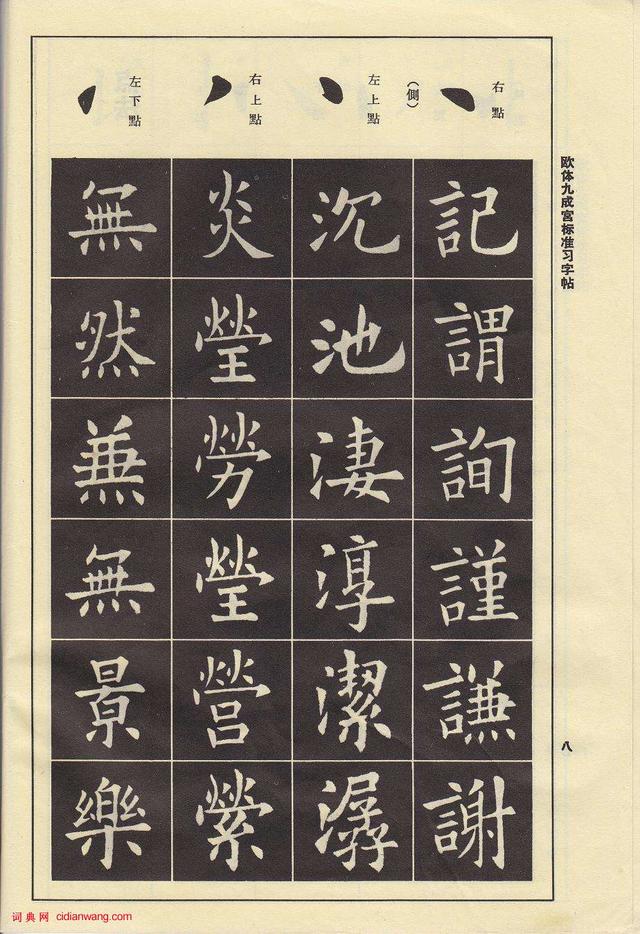 欧体九成宫标准习字帖
八
右點
(側)
記謂詢謹謙謝
左上點
沉池淒淳潔潺
右上點
炎瑩勞瑩營縈
左下點
無然兼無景樂
词典网 cidianwang.com